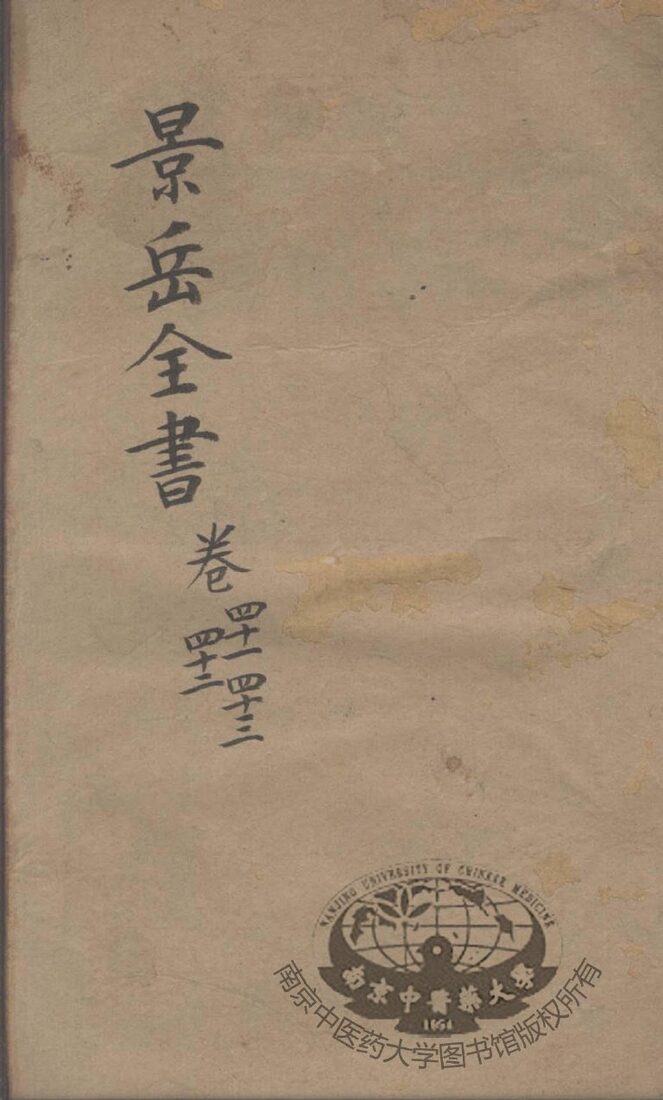 景岳全書
卷
四十一
四十二
四十三
NANJING UNIVERSITY OF CHINESE MEDICINE
南京中醫藥大學
1954
南京中医药大学图书馆版权所有